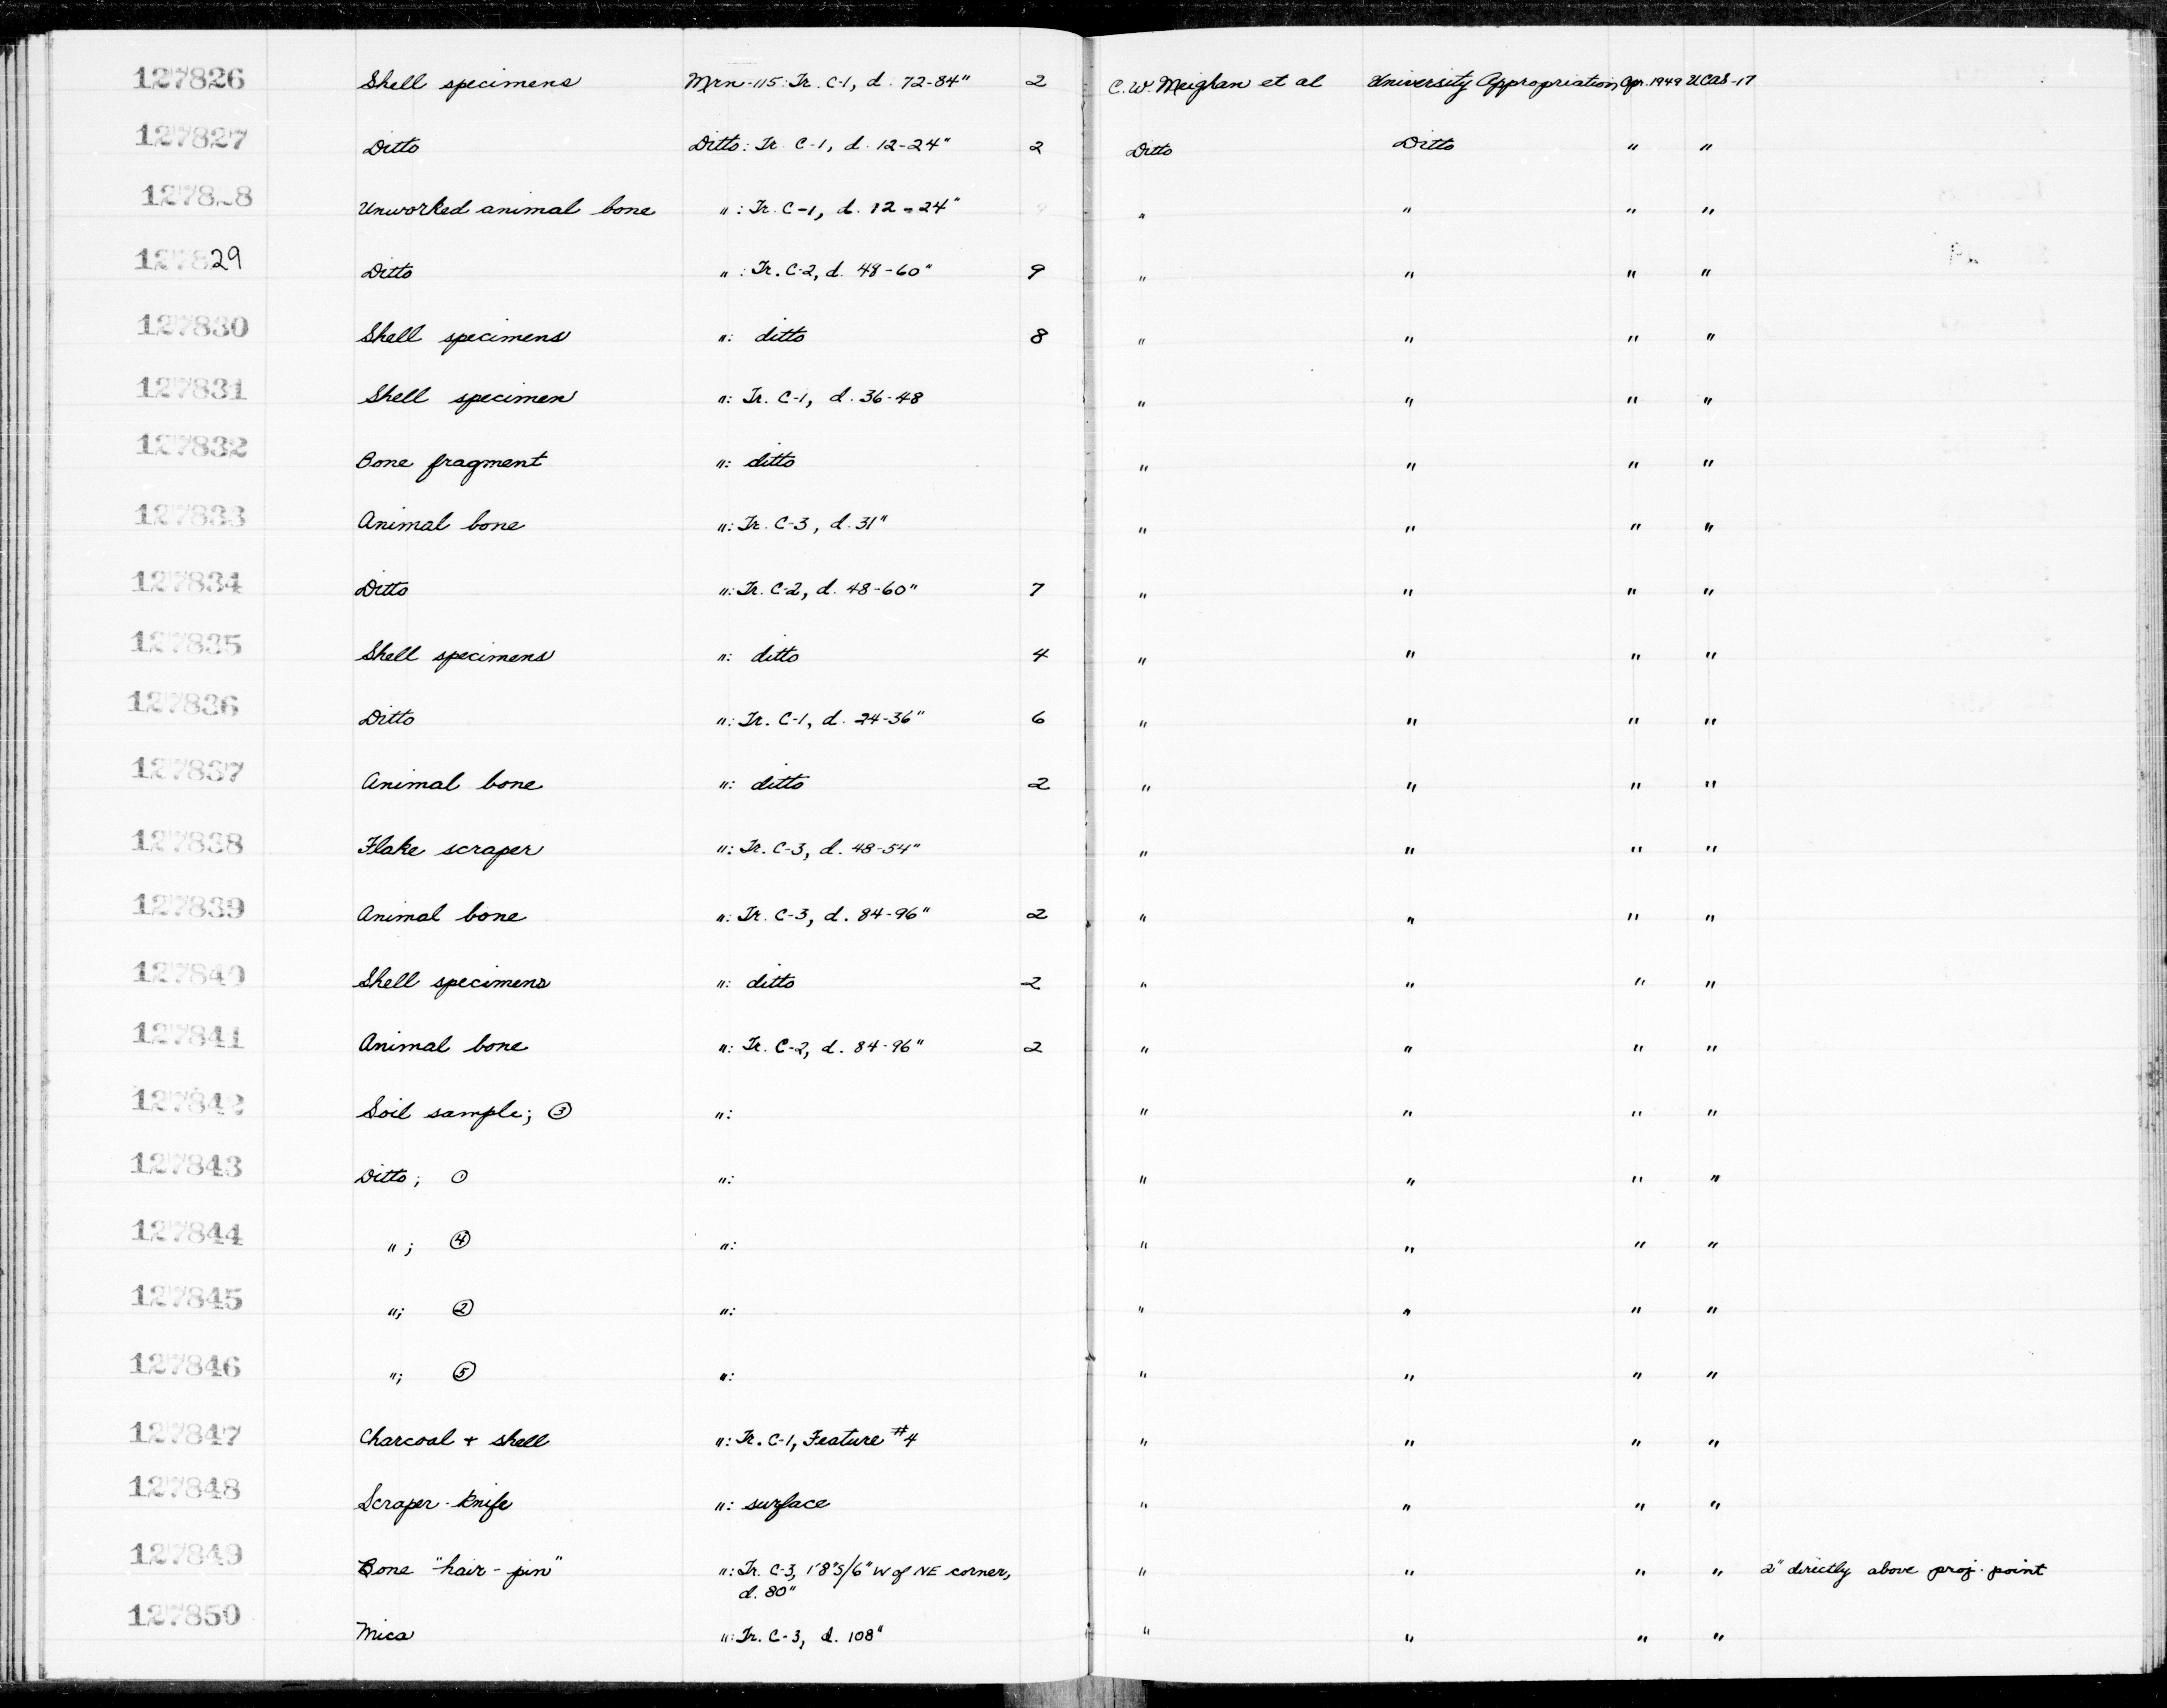 127826 Shell specimens Mrn-115: Tr. C-1, d. 72-84" 2 C.W. Meighan et al University Appropriation Apr. 1949 UCAS-17
127827 Ditto Ditto: Tr. C-1, d. 12-24" 2 Ditto Ditto " "
1278 8 Unworked animal bone ": Tr. C-1, d. 12-24" " " " "
127829 Ditto ": Tr. C-2, d. 48-60" 9 " " " "
127830 Shell specimens ": ditto 8 " " " "
127831 Shell specimen ": Tr. C-1, d. 36-48 " " " "
127832 Bone fragment ": ditto " " " "
127833 Animal bone ": Tr. C-3, d. 31" " " " "
127834 Ditto ": Tr. C-2, d. 48-60" 7 " " " "
127835 Shell specimens ": ditto 4 " " " "
127836 Ditto ": Tr. C-1, d. 24-36" 6 " " " "
127837 Animal bone ": ditto 2 " " " "
127838 Flake scraper ": Tr. C-3, d. 48-54" " " " "
127839 Animal bone ": Tr. C-3, d. 84-96" 2 " " " "
127840 Shell specimens ": ditto 2 " " " "
127841 Animal bone ": Tr. C-2, d. 84-96" 2 " " " "
127842 Soil sample; ③ ": " " " "
127843 Ditto; ① ": " " " "
127844 "; ④ ": " " " "
127845 "; ② ": " " " "
127846 "; ⑤ ": " " " "
127847 Charcoal + shell ": Tr. C-1, Feature #4 " " " "
127848 Scraper-knife ": surface " " " "
127849 Bone "hair-pin" ": Tr. C-3, 1'8"S/6" W of NE corner, " " " " 2" directly above proj. point
d. 80"
127850 Mica ": Tr. C-3, d. 108" " " " "